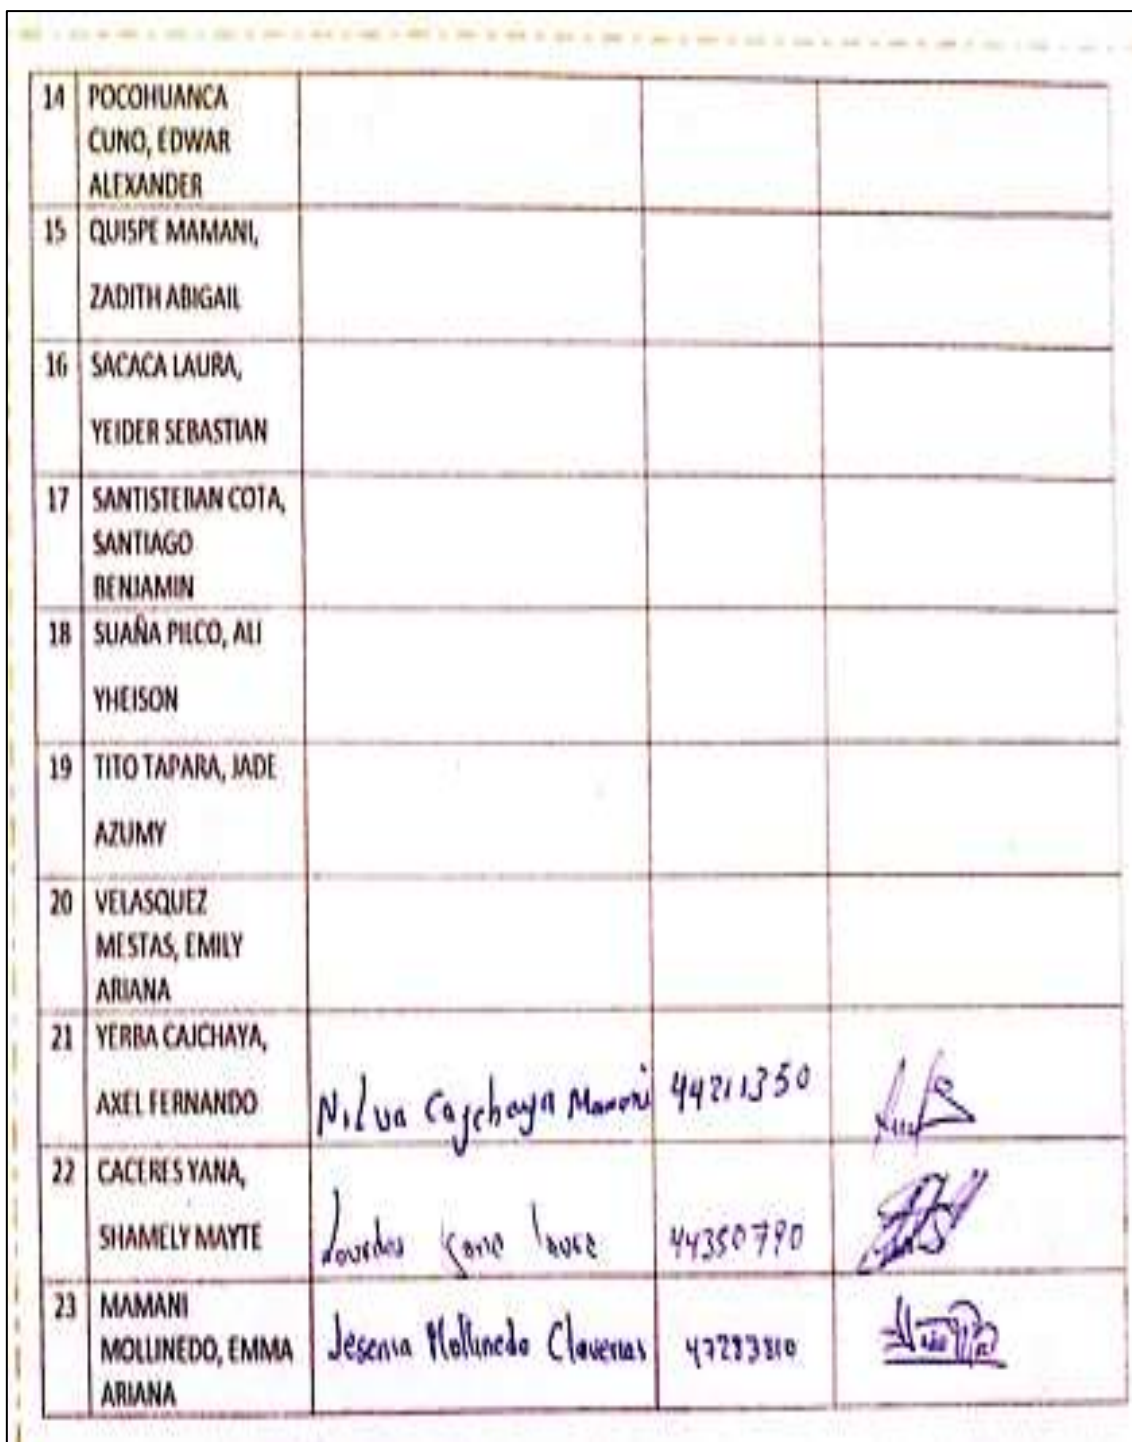 14 POCOHUANCA
CUNO, EDWAR
ALEXANDER
15 QUISPE MAMANI,
ZADITH ABIGAIL
16 SACACA LAURA,
YEIDER SEBASTIAN
17 SANTISTEBAN COTA,
SANTIAGO
BENJAMIN
18 SUAÑA PILCO, ALI
YHEISON
19 TITO TAPARA, JADE
AZUMY
20 VELASQUEZ
MESTAS, EMILY
ARIANA
21 YERBA CAJCHAYA,
AXEL FERNANDO Nilva Cajchaya Mamani 44211350
22 CACERES YANA,
SHAMELY MAYTE Lourdes 44350790
23 MAMANI
MOLLINEDO, EMMA Jesenia Mollinedo Claverias 47283810
ARIANA